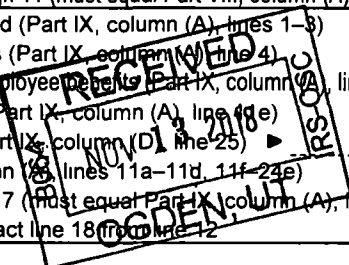 d (Part IX, column (A), lines 1–3)
s (Part IX, column (A), line 4)
ployee benefits (Part IX, column (A), lin
Part IX, column (A), line 11e)
rt IX, column (D), line 25) ▶
n (A), lines 11a–11d, 11f–24e)
7 (must equal Part IX, column (A), l
act line 18 from line 12
RECEIVED
NOV 13 2018
IRS-OSC
OGDEN, UT